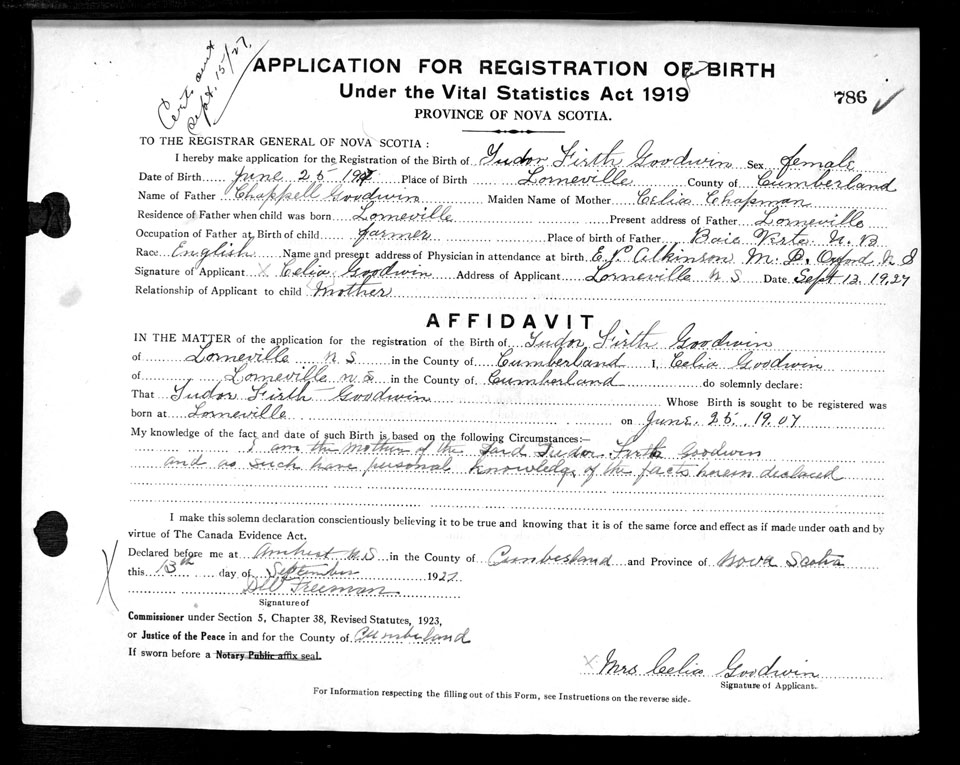 Cert. sent
Sept. 15/27.
APPLICATION FOR REGISTRATION OF BIRTH
Under the Vital Statistics Act 1919
786
PROVINCE OF NOVA SCOTIA.
TO THE REGISTRAR GENERAL OF NOVA SCOTIA :
I hereby make application for the Registration of the Birth of Tudor Firth Goodwin Sex female
Date of Birth June 25 1907 Place of Birth Lorneville County of Cumberland
Name of Father Chappell Goodwin Maiden Name of Mother Celia Chapman
Residence of Father when child was born Lorneville Present address of Father Lorneville
Occupation of Father at Birth of child farmer Place of birth of Father Baie Verte N. B
Race English Name and present address of Physician in attendance at birth E. Atkinson M. D. Oxford N S
Signature of Applicant X Celia Goodwin Address of Applicant Lorneville N S Date Sept 13 1927
Relationship of Applicant to child Mother
AFFIDAVIT
IN THE MATTER of the application for the registration of the Birth of Tudor Firth Goodwin
of Lorneville N S in the County of Cumberland I, Celia Goodwin
of Lorneville N S in the County of Cumberland do solemnly declare:
That Tudor Firth Goodwin Whose Birth is sought to be registered was
born at Lorneville on June 25. 1907
My knowledge of the fact and date of such Birth is based on the following Circumstances:—
I am the mother of the said Tudor Firth Goodwin
and as such have personal knowledge of the facts herein declared
I make this solemn declaration conscientiously believing it to be true and knowing that it is of the same force and effect as if made under oath and by
virtue of The Canada Evidence Act.
Declared before me at Amherst N.S in the County of Cumberland and Province of Nova Scotia
this 13th day of September 1927
Freeman
Signature of
Commissioner under Section 5, Chapter 38, Revised Statutes, 1923,
or Justice of the Peace in and for the County of Cumberland
If sworn before a Notary Public affix seal.
X Mrs Celia Goodwin
Signature of Applicant.
For Information respecting the filling out of this Form, see Instructions on the reverse side.